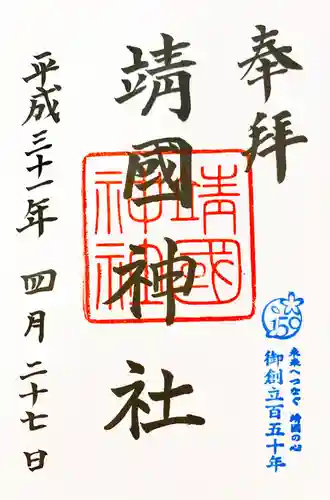 奉拝
150
未来へつなぐ 靖國の心
御創立百五十年
靖國神社
靖國神社
平成三十一年 四月 二十七日